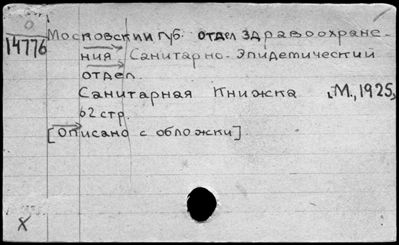 О
14776
Московский губ. отдел здравоохране-
ния Санитарно-Эпидемический
отдел.
Санитарная Книжка [М., 1925,
62 стр.
[Описано с обложки]
X